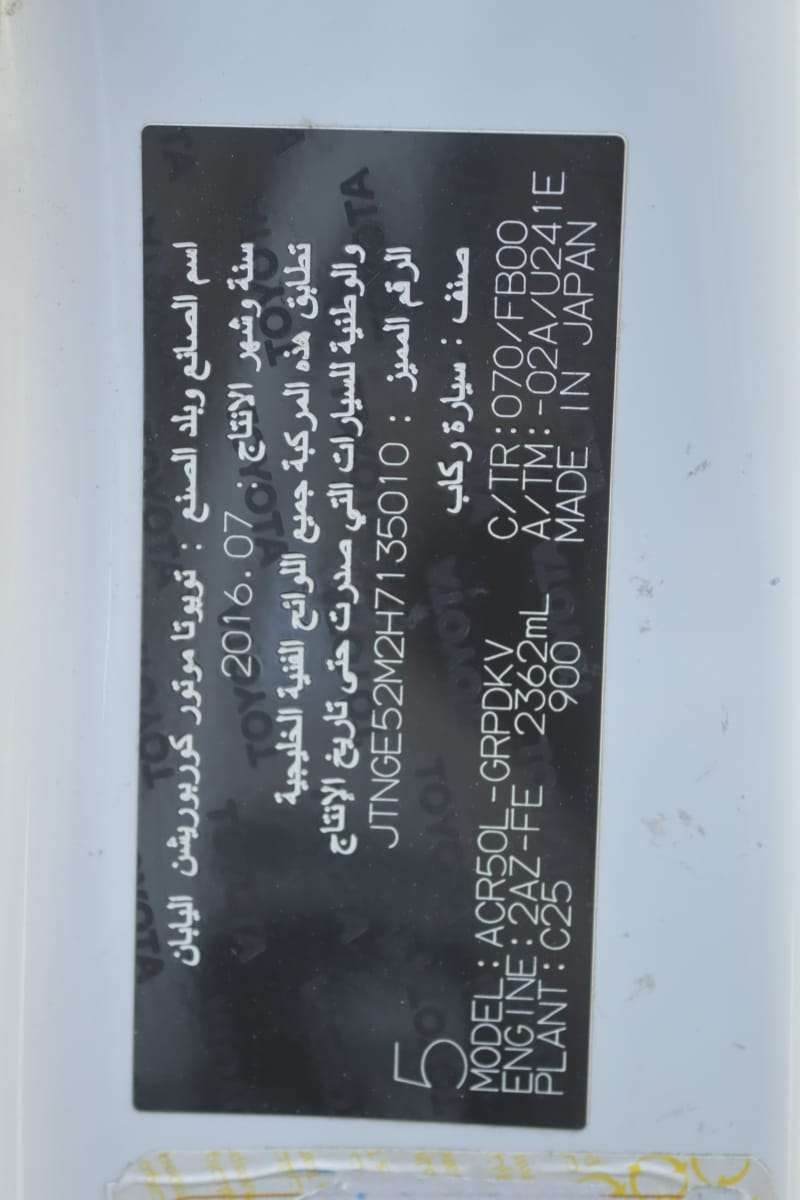 اسم الصانع وبلد الصنع : تويوتا موتور كوربوريشن اليابان
سنة وشهر الانتاج : 2016.07
تطابق هذه المركبة جميع اللوائح الفنية الخليجية
والوطنية للسيارات التي صدرت حتى تاريخ الإنتاج
الرقم المميز : JTNGE52M2H7135010
صنف : سيارة ركاب
5
MODEL:ACR50L-GRPDKV C/TR:070/FB00
ENGINE:2AZ-FE 2362mL A/TM:-02A/U241E
PLANT:C25 900 MADE IN JAPAN